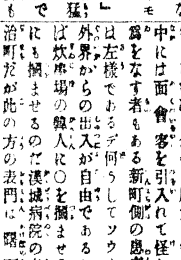 猛
で
も
中には面會客を引入れて怪
爲をなす者もある新町側の患
は左樣であるデ何うしてソウ
外界からの出入が自由である
ば炊事場の韓人に〇を摑ませ
にも摑ませるのだ漢城病院の
治町だが此の方の表門は曙